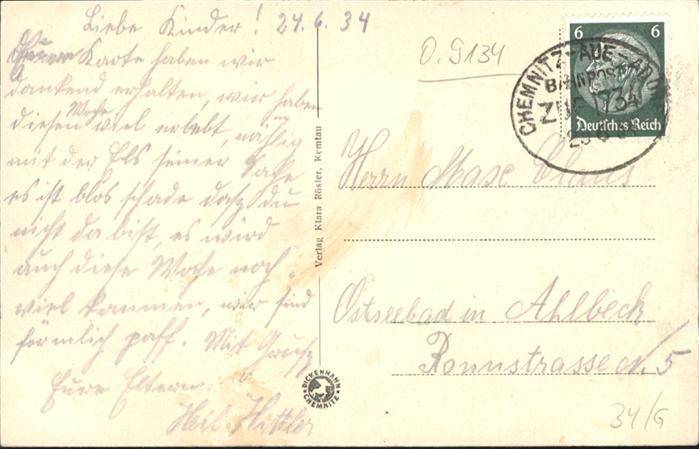 Liebe Kinder! 24.6.34
Karte haben wir
dankend erhalten, wir haben
diesen Woche viel erlebt, nählig
mit der Els seiner Sache
es ist blos schade dasz du
nicht da bist, es wird
auch diese Woche noch
viel kommen, wir sind
förmlich paff. Mit Grusz
Eure Eltern.
Heil Hittler
Verlag Klara Rösler, Kemtau
DICKENHAHN
CHEMNITZ
O. 9134
6 6
Deutsches Reich
CHEMNITZ-AUE-AD
BAHNPOST
ZUG 1734
Herrn Max Claus
Ostseebad in Ahlbeck
Ronnstrasse N. 5
34/G